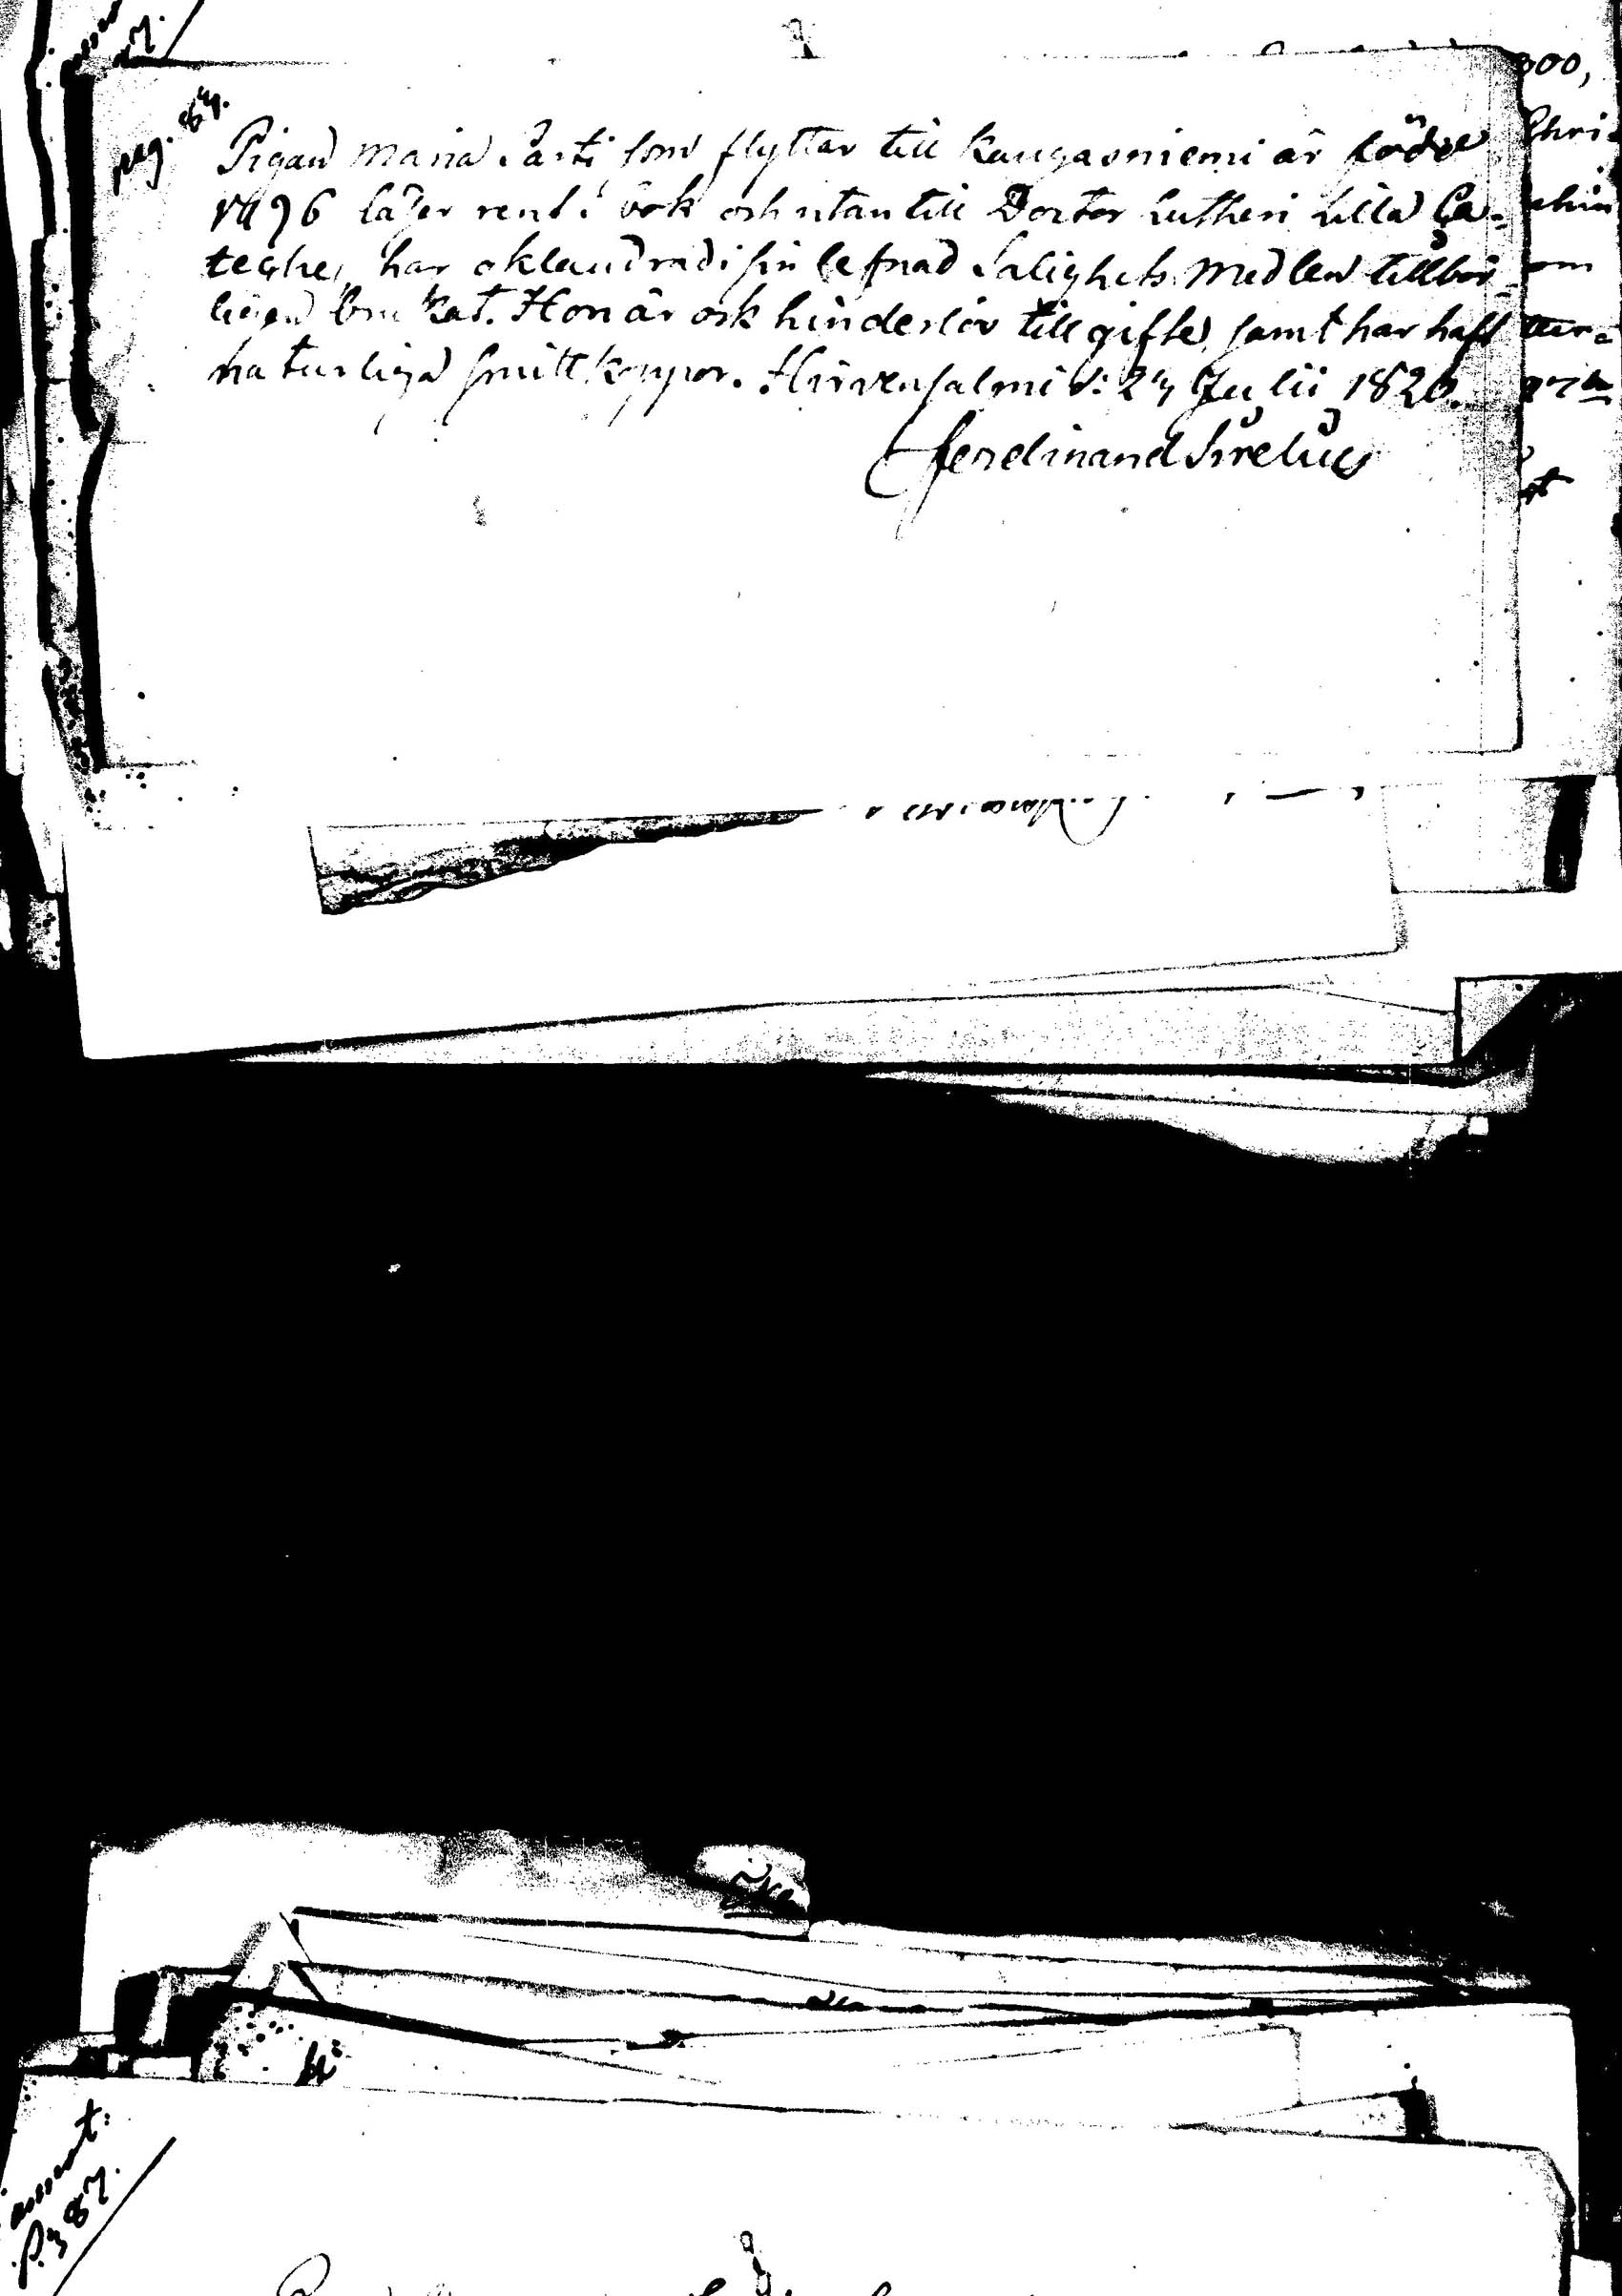 pag. 64.
Pigan Maria Parti som flyttar till Kangasniemi är född
1796 läser rent i bok och utan till Doctor Lutheri Lilla Ca-
teches, har oklandrad i sin lefnad Salighets Medlen tillbör-
ligen brukat. Hon är ock hinderslös till gifte, samt har haft
naturliga smittkoppor. Hirvensalmi d: 24 Julii 1820.
Ferdinand Sirelius
p. 387.